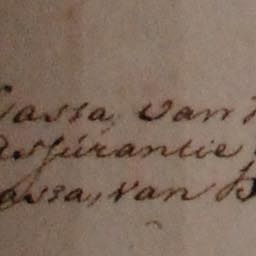 Cassa, van
Assurantie
Cassa, van